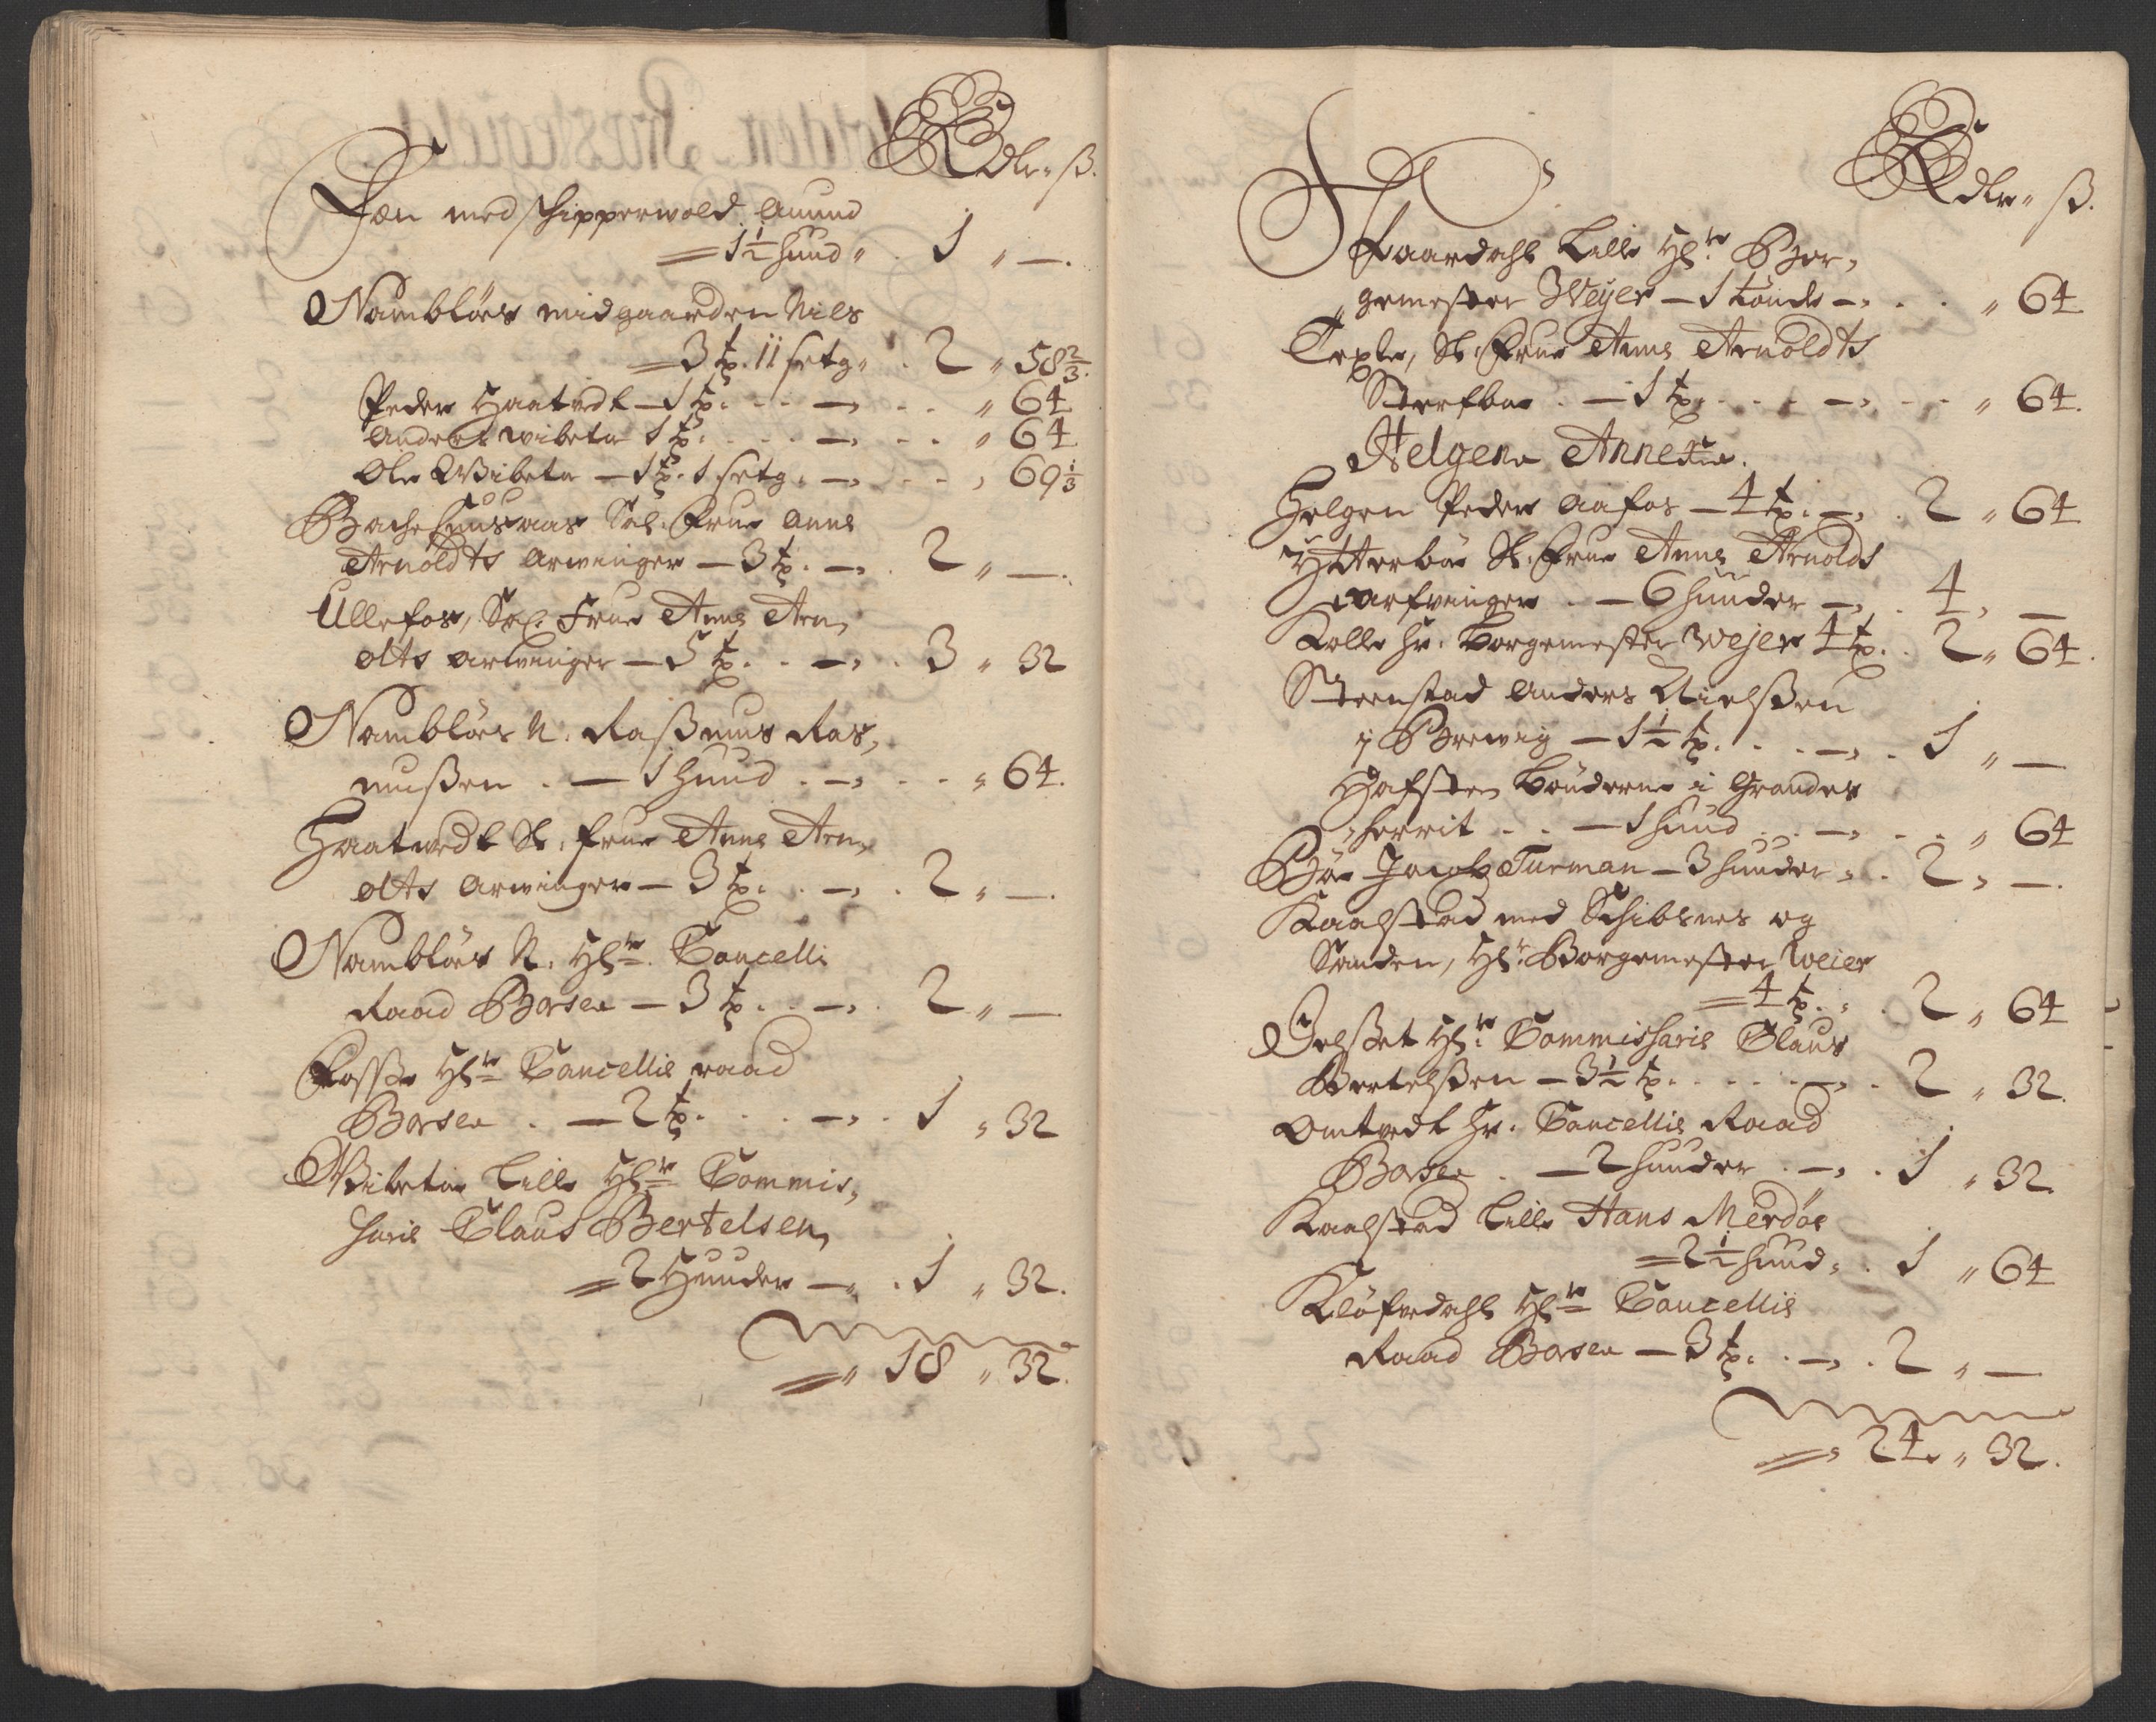 Rdlr " ß.
Fæn med schipperwold Amund
= 1½ hund " . 1 " —.
Nambløes midgaarden Niels
= 3 tp. 11 setg " . 2 " 58⅔.
Peder Haatvedt — 1 tp. - - — - - " 64
Anders Wibetu 1 tp. - - — - - " 64
Ole Wibetu — 1 tp. 1 setg. — - - " 69⅓
Bache huusaas Sal. Frue Anne
Arnoldts Arvinger — 3 tp. — . 2 " —.
Ullefos, Sal. Frue Anne Arn,
olts Arvinger — 5 tp. . — . 3 " 32
Nambløes N. Raßmus Ras,
mußen . — 1 hund . — - - " 64.
Haatvedt Sl. frue Anne Arn,
olts Arvinger — 3 tp. . — . 2 " —.
Nambløes N. Hl: Cancelli
Raad Borse — 3 tp. . — . 2 " —.
Fosse Hl: Cancellie raad
Borse . — 2 tp. . . — . 1 " 32
Wibetue Lille Hl: Commis,
sarie Claus Bertelsen,
= 2 Hunder — . 1 " 32.
= " 18 " 32.
Rdlr " ß.
Aardahl Lille Hl: Bor,
" gemester Weyer — 1 Londe — . . " 64
Texle, Sl. Frue Anne Arnoldts
Sterfboe . — 1 tp. - - - — - - " 64.
Helgens Annexe.
Helgen Peder Aafos — 4 tp. — . 2 " 64
Ytterbøe Sl. Frue Anne Arnolds
Arfvinger . — 6 hunder — . 4 , —
Kolle Hr. Borgemester Wejer 4 tp. . 2 " 64.
Steenstad Anders Nielßen
i Brewig — 1½ tp. . . — . 1 " —
Hafsten Bønderne i Grandes
herrit . . — 1 hund . . — - - " 64
Bøe Jacob Turman — 3 hunder " . 2 , —.
Kaalstad med Schibsnes og
Sanden, Hl: Borgemester Weier
= 4 tp. " . 2 " 64
Gelßet Hl: Commissarie Claus
Bertelßen — 3½ tp. - - - — . 2 " 32.
Omtvedt Hr. Cancellie Raad
Borse . — 2 hunder . — . 1 " 32.
Kaalstad Lille Hans Merdøe
= 2½ hund " . 1 " 64
Kløfvedahl Hl: Cancellie
Raad Borse — 3 tp. . — . 2 " —
= " 24 " 32.